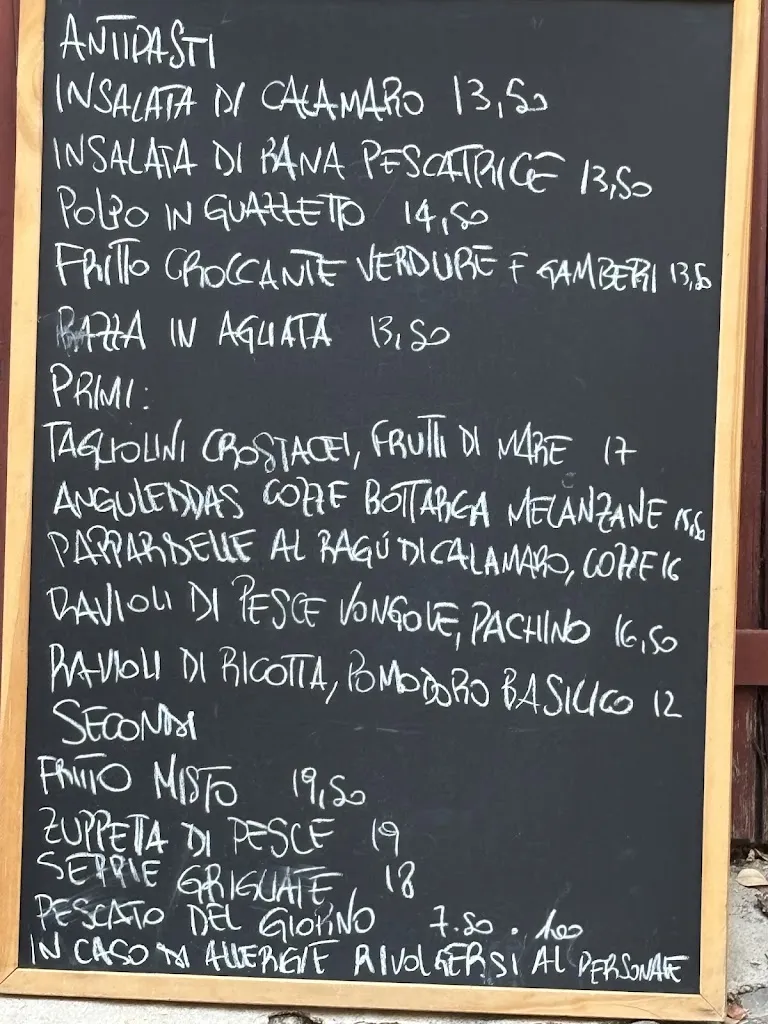 ANTIPASTI
INSALATA DI CALAMARO 13,50
INSALATA DI RANA PESCATRICE 13,50
POLPO IN GUAZZETTO 14,50
FRITTO CROCCANTE VERDURE E GAMBERI 13,50
RAZZA IN AGLIATA 13,50
PRIMI:
TAGLIOLINI CROSTACEI, FRUTTI DI MARE 17
ANGULEDDAS COZZE BOTTARGA MELANZANE 15,50
PAPPARDELLE AL RAGÙ DI CALAMARO, COZZE 16
RAVIOLI DI PESCE VONGOLE, PACHINO 16,50
RAVIOLI DI RICOTTA, POMODORO BASILICO 12
SECONDI
FRITTO MISTO 19,50
ZUPPETTA DI PESCE 19
SEPPIE GRIGLIATE 18
PESCATO DEL GIORNO 7.50 . 100
IN CASO DI ALLERGIE RIVOLGERSI AL PERSONALE